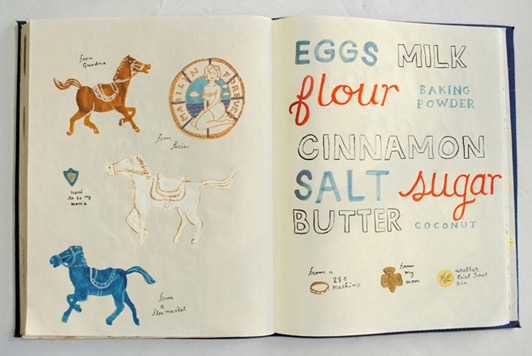 from
Grandma
MARILYN FOREVER
from
Paris
used
to be my
mama's
from
a
flea market
EGGS MILK
flour BAKING
POWDER
CINNAMON
SALT sugar
BUTTER COCONUT
from a
25¢
machine
from
my
mom
another
Girl Scout
pin